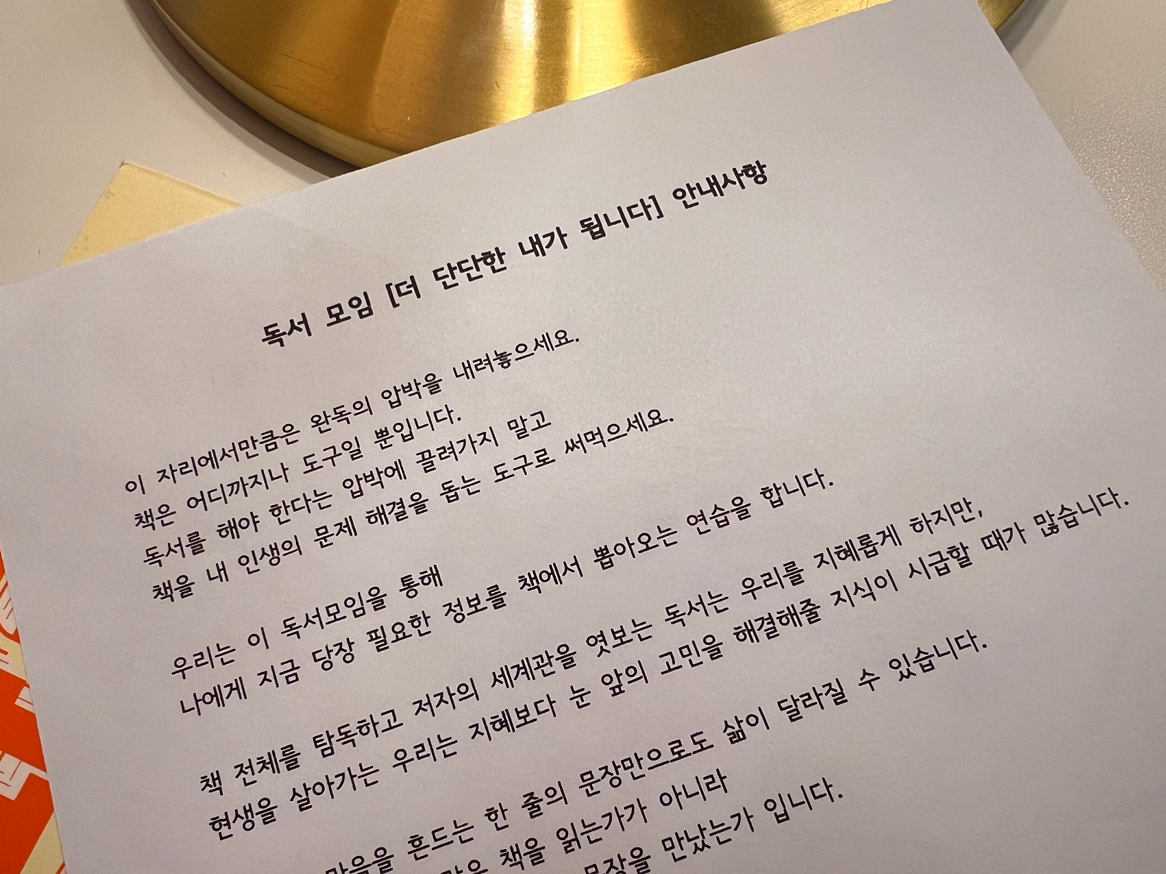 독서 모임 [더 단단한 내가 됩니다] 안내사항
이 자리에서만큼은 완독의 압박을 내려놓으세요.
책은 어디까지나 도구일 뿐입니다.
독서를 해야 한다는 압박에 끌려가지 말고
책을 내 인생의 문제 해결을 돕는 도구로 써먹으세요.
우리는 이 독서모임을 통해
나에게 지금 당장 필요한 정보를 책에서 뽑아오는 연습을 합니다.
책 전체를 탐독하고 저자의 세계관을 엿보는 독서는 우리를 지혜롭게 하지만,
현생을 살아가는 우리는 지혜보다 눈 앞의 고민을 해결해줄 지식이 시급할 때가 많습니다.
마음을 흔드는 한 줄의 문장만으로도 삶이 달라질 수 있습니다.
책을 읽는가가 아니라
문장을 만났는가 입니다.